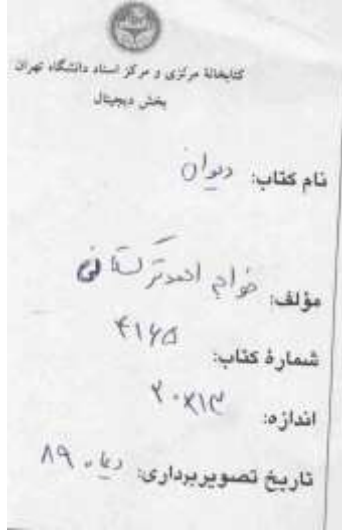 کتابخانهٔ مرکزی و مرکز اسناد دانشگاه تهران
بخش دیجیتال
نام کتاب: دیوان
مؤلف: خواجه احمد ترکستانی
شمارهٔ کتاب: ۴۱۶۵
اندازه: ۲۰×۱۳
تاریخ تصویربرداری: دیماه ۸۹